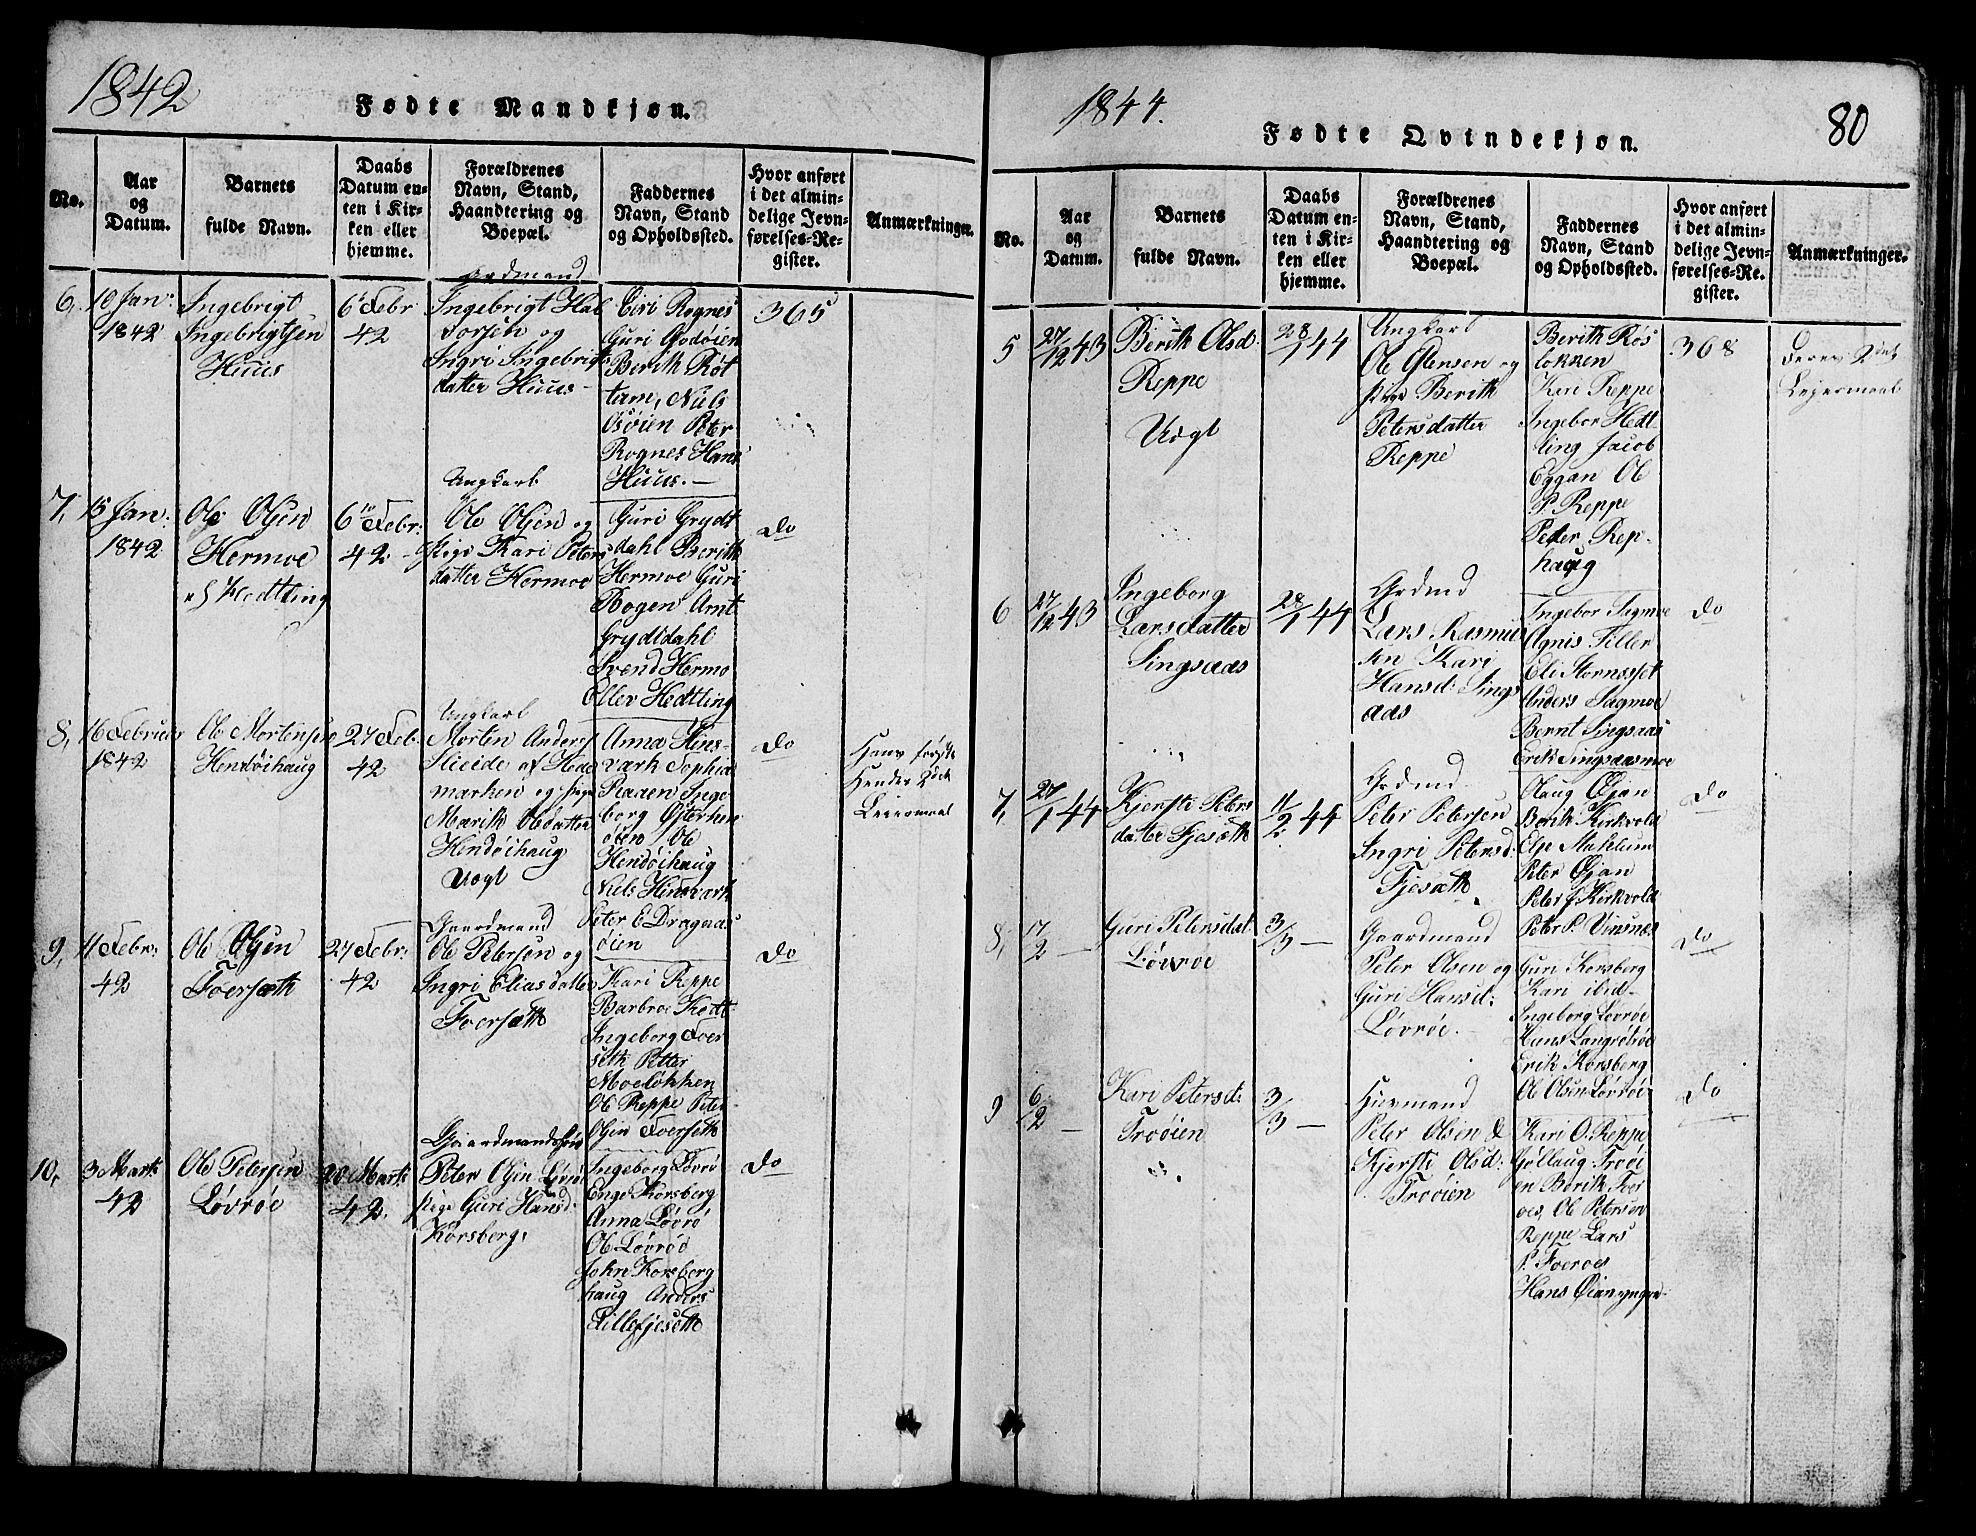 1842
Fødte Mandkjøn.
No.
Aar
og
Datum.
Barnets
fulde Navn.
Daabs
Datum en-
ten i Kir-
ken eller
hjemme.
Forældrenes
Navn, Stand,
Haandtering og
Boepæl.
Faddernes
Navn, Stand
og Opholdssted.
Hvor anført
i det almin-
delige Jevn-
førelses-Re-
gister.
Anmærkninger.
6,
10 Jan:
1842
Ingebrigt
Ingebrigtsen
Huus
6 Febr
42
Grdmand
Ingebrigt Hal
dorsen og
Ingri Ingebrigts
datter Huus -
Siri Rognes
Guri
Berik Røt
tum, Niels
Peter
Rognes Hans
Huus. -
365
7,
15 Jan:
1842
Ole Olsen
Hermoe
af Hedtling
6 Febr:
42 -
Ungkarl
Ole Olsen og
Pige Kari Peters
datter Hermoe
Guri Grydt
dahl Berith
Hermoe Guri
Bogen Arnt
Grydtdahl
Svend Hermo
Ellev Hedtling
do
8,
16 Februar
1842
Ole Mortensen
Hendøihaug
27 Feb.
42
Ungkarl
Morten Anders
af Hede
marken og Pige
Marik Olsdatter
Hendøihaug
Uægt
Anna Hins-
vark Sophia
Raaen Inge
borg Østerhen
døen, Ole
Hendøihaug
Niels Hinsvark
Peter E Dragaas
øien
do
Hans første
Hendes 2det
Leiermaal
9,
11 Febr:
42
Ole Olsen
Foersæth
27 Febr:
42
Gaardmand
Ole Petersen og
Ingri Eliasdatter
Foersæth
Kari Reppe
Barbroe Hedt
Ingeborg Foer
seth Petter
Moeløkken
Ole Reppe Peter
Olsen Foerseth
do
10,
3 Mark
42
Ole Petersen
Løvrøe
20 Mark
42.
Gaardmandssøn
Peter Olsen Løvrøe
Pige Guri Hansd:
Korsberg,
Ingeborg Løvrø
Korsberg
Anna Løvrø
Ole Løvrøe
John Korsberg
haug Anders
Lillefjeseth
do
1844.
80
Fødte Qvindekjøn.
No.
Aar
og
Datum.
Barnets
fulde Navn.
Daabs
Datum en-
ten i Kir-
ken eller
hjemme.
Forældrenes
Navn, Stand,
Haandtering og
Boepæl.
Faddernes
Navn, Stand
og Opholdssted.
Hvor anført
i det almin-
delige Jevn-
førelses-Re-
gister.
Anmærkninger.
5
27/12 43
Berith Olsd
Reppe
Uægt
28/1 44
Ungkarl
Ole Estensen og
pige Berith
Petersdatter
Reppe
Berith Røs
løkken
Kari Reppe
Ingebor Hedt
ling Jacob
Eggan Ole
P. Reppe
Peder Rep-
haug
368
deres 2det
Leiermaal
6
27/12 43
Ingeborg
Larsdatter
Singsaas
28/1 44
Grdmd
Lars Rasmus
sen Kari
Hansd: Sings
aas
Ingebor Sagmoe
Agnis Tiller
Eli Stornesset
Anders Sagmoe
Bernt Singsaas
Erik Singsaasmoe
do
7,
27/1 44
Kjersti Peters
datter Fjesæth
11/2 44
Grdmd
Peter Petersen
Ingri Petersd:
Fjesæth
Olaug Øjan
Berik Kirkvold
Else Mahlum
Peter Øjan
Peter J. Kirkvold
Peter P. Vinsnes
do
8,
17/2 -
Guri Petersdat
Løvroe
3/3 -
Gaardmand
Peter Olsen og
Guri Hansd:
Løvrøe. -
Guri Korsberg
Kari ibid-
Ingeborg Løvrøe
Hans Langrøbrøe
Erik Korsberg
Ole Olsen Løvrøe
do
9
6/2 -
Kari Petersd:
Troøien
3/3 -
Huusmand
Peter Olsen &
Kjersti Olsd:
Troøien
Kari O. Reppe
Gøllaug Troøi
en Berik Foer
oes, Ole Petersen
Reppe Lars
P. Foeroes
Hans Øian yngre
do